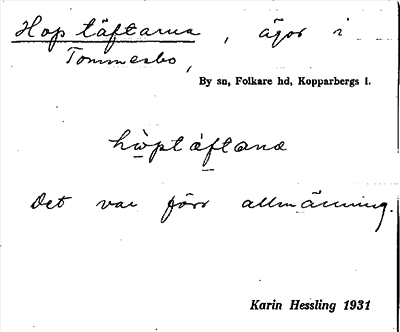 Hop täftarna, ägor i
Tommesbo,
By sn, Folkare hd, Kopparbergs l.
hòptáftana
Det var förr allmänning.
Karin Hessling 1931